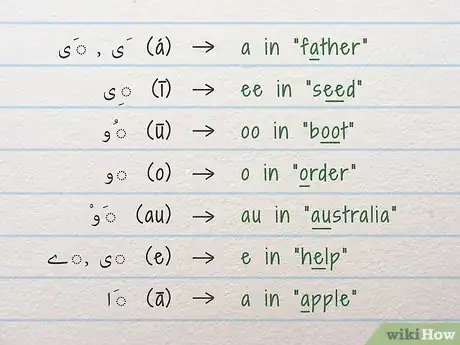 ◌َی , َی (á) → a in "father"
◌ِی (ī) → ee in "seed"
◌ُو (ū) → oo in "boot"
◌و (o) → o in "order"
◌َوْ (au) → au in "australia"
◌ے ,◌ی (e) → e in "help"
◌َا (ā) → a in "apple"
wikiHow